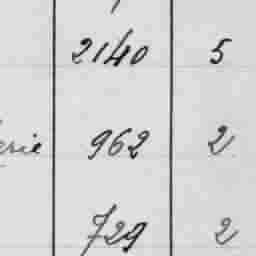 2140 5
erie 962 2
729 2